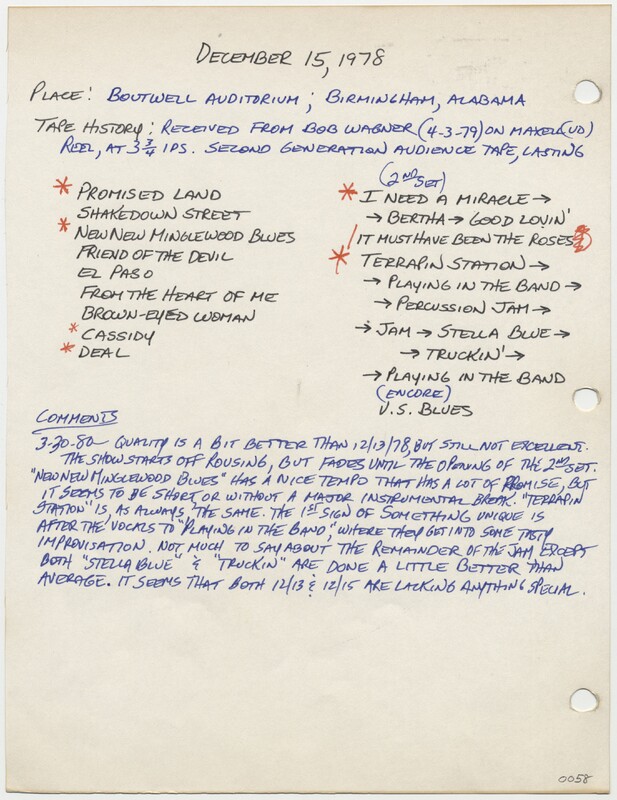 DECEMBER 15, 1978
PLACE: BOUTWELL AUDITORIUM; BIRMINGHAM, ALABAMA
TAPE HISTORY: RECEIVED FROM BOB WAGNER (4-3-79) ON MAXELL (UD)
REEL, AT 3 3/4 IPS. SECOND GENERATION AUDIENCE TAPE, LASTING
* PROMISED LAND
SHAKEDOWN STREET
* NEW NEW MINGLEWOOD BLUES
FRIEND OF THE DEVIL
EL PASO
FROM THE HEART OF ME
BROWN-EYED WOMAN
* CASSIDY
* DEAL
(2ND SET)
* I NEED A MIRACLE →
→ BERTHA → GOOD LOVIN'
IT MUST HAVE BEEN THE ROSES
* TERRAPIN STATION →
→ PLAYING IN THE BAND →
→ PERCUSSION JAM →
→ JAM → STELLA BLUE →
→ TRUCKIN' →
→ PLAYING IN THE BAND
(ENCORE)
U.S. BLUES
COMMENTS
3-20-80 QUALITY IS A BIT BETTER THAN 12/13/78, BUT STILL NOT EXCELLENT.
THE SHOW STARTS OFF ROUSING, BUT FADES UNTIL THE OPENING OF THE 2ND SET.
"NEW NEW MINGLEWOOD BLUES" HAS A NICE TEMPO THAT HAS A LOT OF PROMISE, BUT
IT SEEMS TO BE SHORT OR WITHOUT A MAJOR INSTRUMENTAL BREAK. "TERRAPIN
STATION" IS, AS ALWAYS, THE SAME. THE 1ST SIGN OF SOMETHING UNIQUE IS
AFTER THE VOCALS TO "PLAYING IN THE BAND", WHERE THEY GET INTO SOME TASTY
IMPROVISATION. NOT MUCH TO SAY ABOUT THE REMAINDER OF THE JAM, EXCEPT
BOTH "STELLA BLUE" & "TRUCKIN" ARE DONE A LITTLE BETTER THAN
AVERAGE. IT SEEMS THAT BOTH 12/13 & 12/15 ARE LACKING ANYTHING SPECIAL.
0058